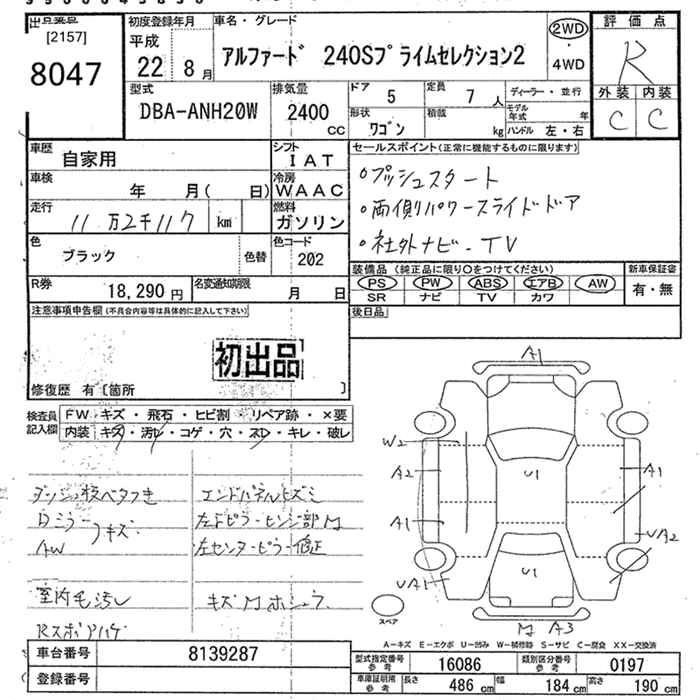 出品番号
[2157]
8047
初度登録年月
平成
22 8月
車名・グレード
アルファード 240Sプライムセレクション2
2WD
・
4WD
評価点
R
外装 内装
C C
型式
DBA-ANH20W
排気量
2400
cc
ドア 5
定員 7 人
形状 ワゴン
積載 kg
ディーラー・並行
モデル年式 年
ハンドル 左・右
車歴 自家用
シフト
IAT
車検 年 月( 日)
冷房
WAAC
走行 11万2千117 km
燃料
ガソリン
色 ブラック 色替
色コード
202
R券 18,290円
名変通知期限 月 日
セールスポイント(正常に機能するものに限ります)
。プッシュスタート
。両側パワースライドドア
。社外ナビ・TV
装備品 (純正品に限り〇をつけてください)
PS PW ABS エアB AW
SR ナビ TV カワ
新車保証書
有・無
後日品
注意事項申告欄(不具合内容等は具体的に記入して下さい)
初出品
修復歴 有〔箇所 〕
検査員記入欄
FW キズ・飛石・ヒビ割・リペア跡・×要
内装 キズ・汚レ・コゲ・穴・スレ・キレ・破レ
ダッシュ板ベタつき
Dミラー
AW
キズ
室内毛汚レ
Rスポアハゲ
エンドパネルヒズミ
左Fピラーヒンジ部M
左センターピラー修正
キズM ホシュウ
A1
W2
A2
A1
UA1
U1
U1
A1
UA2
M A3
スペア
A-キズ E-エクボ U-凹み W-補修跡 S-サビ C-腐食 XX-交換済
車台番号 8139287
登録番号
型式指定番号
参考
16086
類別区分番号
参考
0197
車庫証明用
参考
長さ 486 cm
幅 184 cm
高さ 190 cm